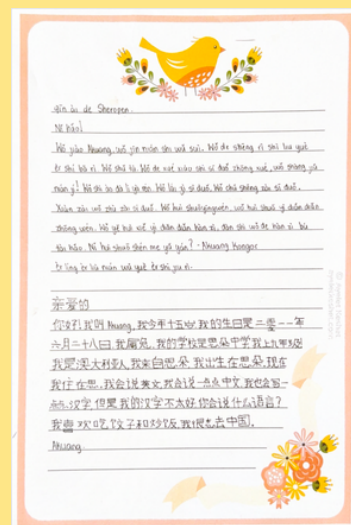 Qīn ài de Sheropen.
Nǐ hǎo!
Wǒ jiào Nhuang, wǒ jīn nián shí wǔ suì. Wǒ de shēng rì shì liù yuè
èr shí bā rì. Wǒ shǔ tù. Wǒ de xué xiào shì sī duǒ zhōng xué, wǒ shàng jiǔ
nián jí! Wǒ shì ào dà lì yà rén. Wǒ lái zì sī duǒ. Wǒ chū shēng zài sī duǒ.
Xiàn zài wǒ zhù zài sī duǒ. Wǒ huì shuō yīngwén, wǒ huì shuō yì diǎn diǎn
zhōng wén. Wǒ yě huì xiě yì diǎn diǎn hàn zì, dàn shì wǒ de hàn zì bù
tài hǎo. Nǐ huì shuō shén me yǔ yán? - Nhuang
èr líng èr liù nián wǔ yuè èr shí jiǔ rì.
亲爱的
你好!我叫Nhuang,我今年十五岁,我的生日是二零一一年
六月二十八日,我属兔,我的学校是思朵中学,我上九年级
我是澳大利亚人,我来自思朵,我出生在思朵,现在
我住在思,我会说英文,我会说一点点中文,我也会写一
点点汉字,但是我的汉字不太好,你会说什么语言?
我喜欢吃饺子和炒饭,我很想去中国。
Nhuang